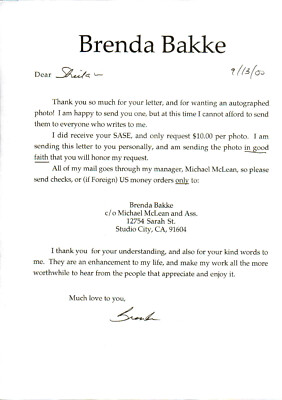 Brenda Bakke
Dear Sheila 9/13/00
Thank you so much for your letter, and for wanting an autographed
photo! I am happy to send you one, but at this time I cannot afford to send
them to everyone who writes to me.
I did receive your SASE, and only request $10.00 per photo. I am
sending this letter to you personally, and am sending the photo in good
faith that you will honor my request.
All of my mail goes through my manager, Michael McLean, so please
send checks, or (if Foreign) US money orders only to:
Brenda Bakke
c/o Michael McLean and Ass.
12754 Sarah St.
Studio City, CA, 91604
I thank you for your understanding, and also for your kind words to
me. They are an enhancement to my life, and make my work all the more
worthwhile to hear from the people that appreciate and enjoy it.
Much love to you,
Brenda